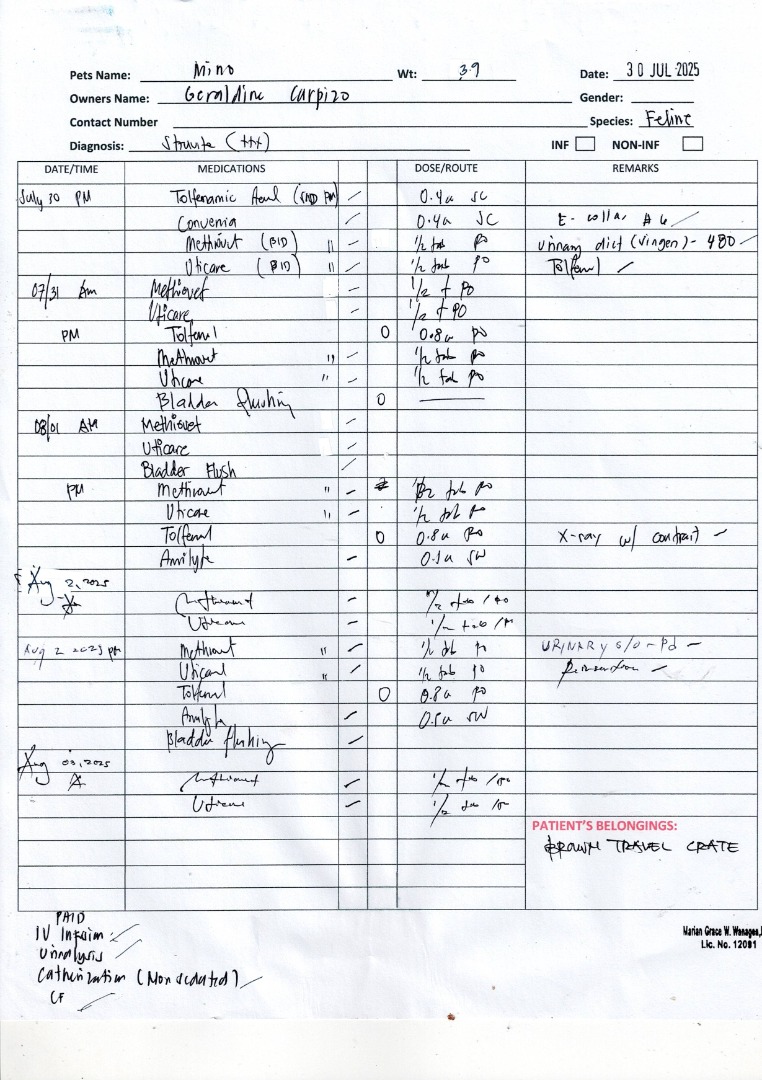 Pets Name: Mino Wt: 3.9 Date: 30 JUL 2025
Owners Name: Geraldine Carpizo Gender:
Contact Number Species: Feline
Diagnosis: Struvite (+++) INF NON-INF
DATE/TIME MEDICATIONS DOSE/ROUTE REMARKS
July 30 PM Tolfenamic Acid 0.4 SC
Convenia 0.4 SC E-collar #6
Methiovet (BID) " 1/2 tab PO urinary diet (Vingen) - 480
Uticare (BID) " 1/2 tab PO Tolfenol
07/31 Am Methiovet 1/2 t PO
Uticare 1/2 t PO
PM Tolfenol 0 0.8 PO
Methiovet " 1/2 tab PO
Uticare " 1/2 tab PO
Bladder flushing 0
08/01 AM Methiovet
Uticare
Bladder Flush
PM Methiovet " 1/2 tab PO
Uticare " 1/2 tab PO
Tolfenol 0 0.8 PO X-ray w/ contrast
Amilyte
Aug 2, 2025
Methiovet 1/2 tab / PO
Uticare 1/2 tab / PO
Aug 2 2025 pm Methiovet " 1/2 tab PO URINARY S/O - Pd
Uticare " 1/2 tab PO
Tolfenol 0 0.8 PO
Amilyte
Bladder flushing
Aug 03, 2025
Methiovet 1/2 tab / PO
Uticare 1/2 tab / PO
PATIENT'S BELONGINGS:
BROWN TRAVEL CRATE
PAID
IV
Urinalysis
Catherization (Non sedated)
CF
Marian Grace W. Wanages,
Lic. No. 12091